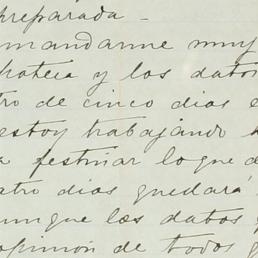 preparada_
mandarme muy
poteca y los datos
tro de cinco dias e
estoy trabajando
a festinar lo que d
atro dias quedará
unque los datos
opinión de todos